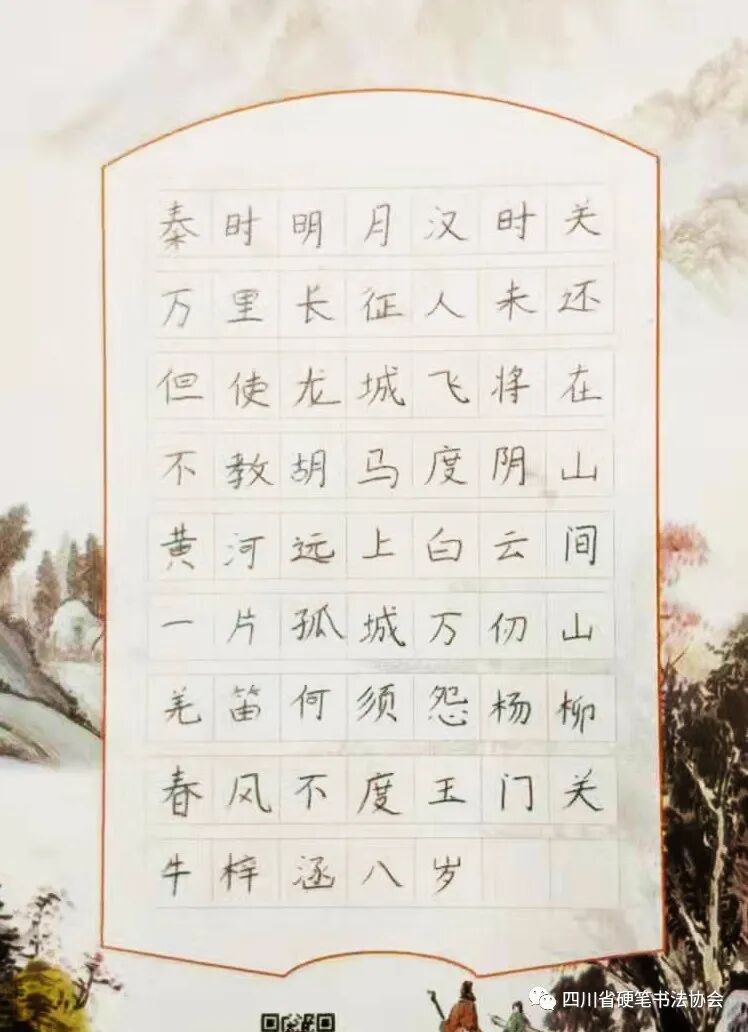 秦时明月汉时关
万里长征人未还
但使龙城飞将在
不教胡马度阴山
黄河远上白云间
一片孤城万仞山
羌笛何须怨杨柳
春风不度玉门关
牛梓涵八岁
四川省硬笔书法协会